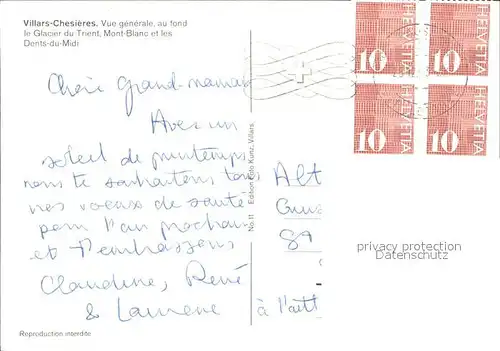 Villars-Chesières. Vue générale, au fond
le Glacier du Trient, Mont-Blanc et les
Dents-du-Midi
Chère grand-maman
Avec un
soleil de printemps
nous te souhaitons tous
nos voeux de santé
pour l'an prochain
et t'embrassons
Claudine, René
& Laurence
Reproduction interdite
No. 11 Edition Foto Kunz, Villars.
HELVETIA 10
HELVETIA 10
HELVETIA 10
HELVETIA 10
Alt
à l'att
privacy protection
Datenschutz